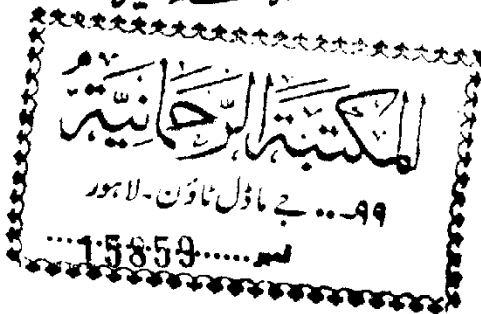 المكتبة الرحمانية
۹۹... جے ماڈل ٹاؤن ۔ لاہور
نمبر......15859.....